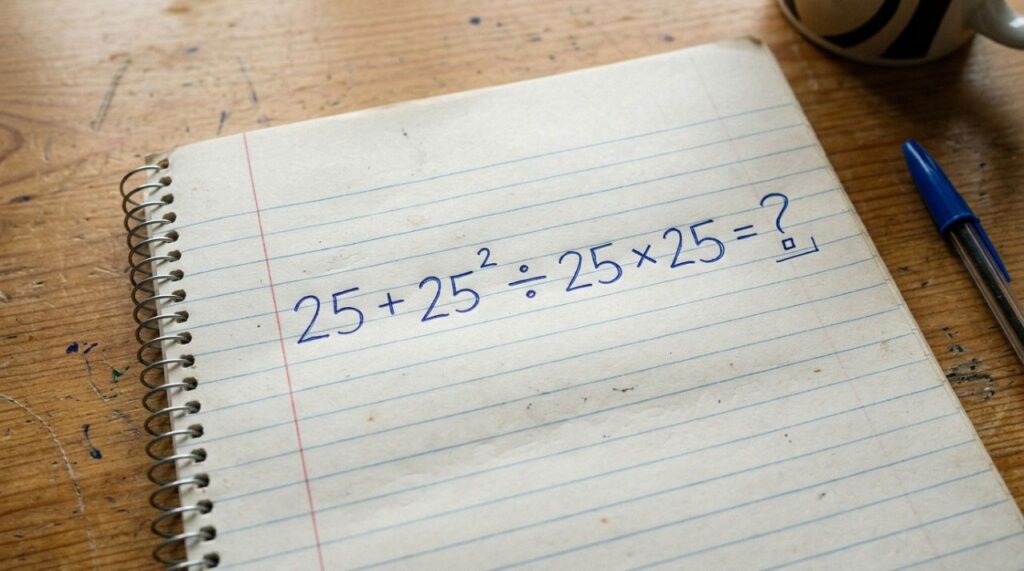 25 + 25² ÷ 25 × 25 = ?